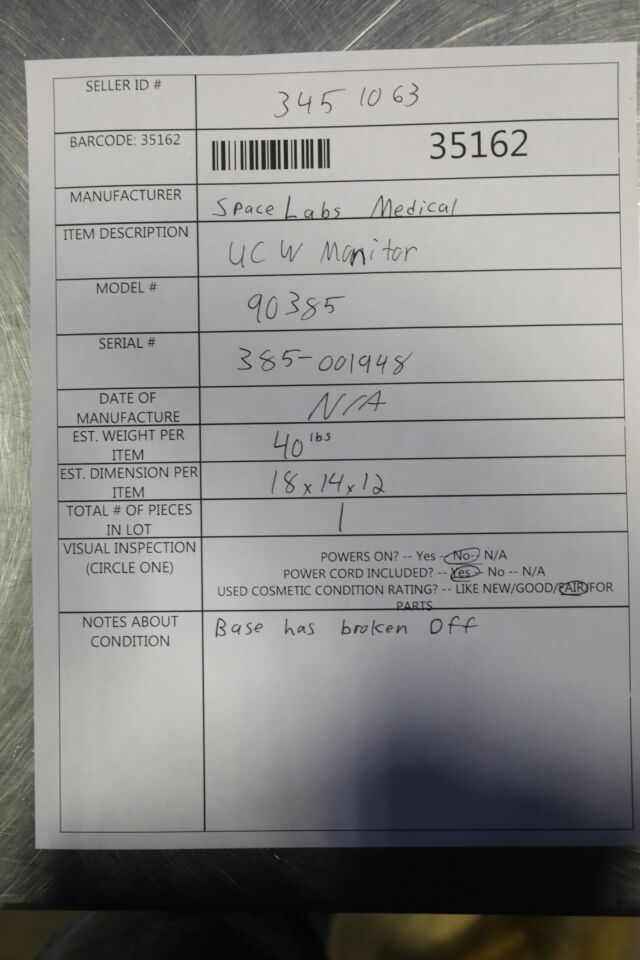 SELLER ID #
345 1063
BARCODE: 35162
35162
MANUFACTURER
Space Labs Medical
ITEM DESCRIPTION
UCW Monitor
MODEL #
90385
SERIAL #
385-001948
DATE OF
MANUFACTURE
N/A
EST. WEIGHT PER
ITEM
40 lbs
EST. DIMENSION PER
ITEM
18 x 14 x 12
TOTAL # OF PIECES
IN LOT
1
VISUAL INSPECTION
(CIRCLE ONE)
POWERS ON? -- Yes -- No -- N/A
POWER CORD INCLUDED? -- Yes -- No -- N/A
USED COSMETIC CONDITION RATING? -- LIKE NEW/GOOD/FAIR/FOR
PARTS
NOTES ABOUT
CONDITION
Base has broken Off